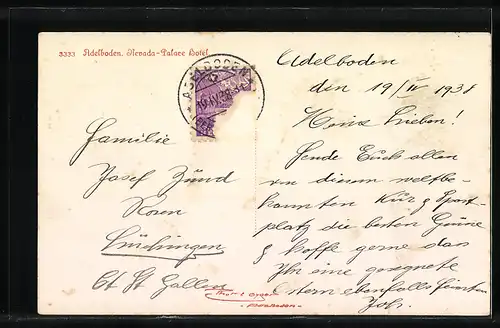 3333 Adelboden. Nevada-Palace Hotel
ADELBODEN
Adelboden
den 19/IV 1938
Meine Lieben!
Sende Euch allen
von diesem weltbe-
kannten Kur & Sport-
platz die besten Grüsse
& hoffe gerne das
Ihr eine gesegnete
Ostern ebenfalls feierten
Familie
Josef Zünd
Rosen
Lüchingen
Ct St Gallen